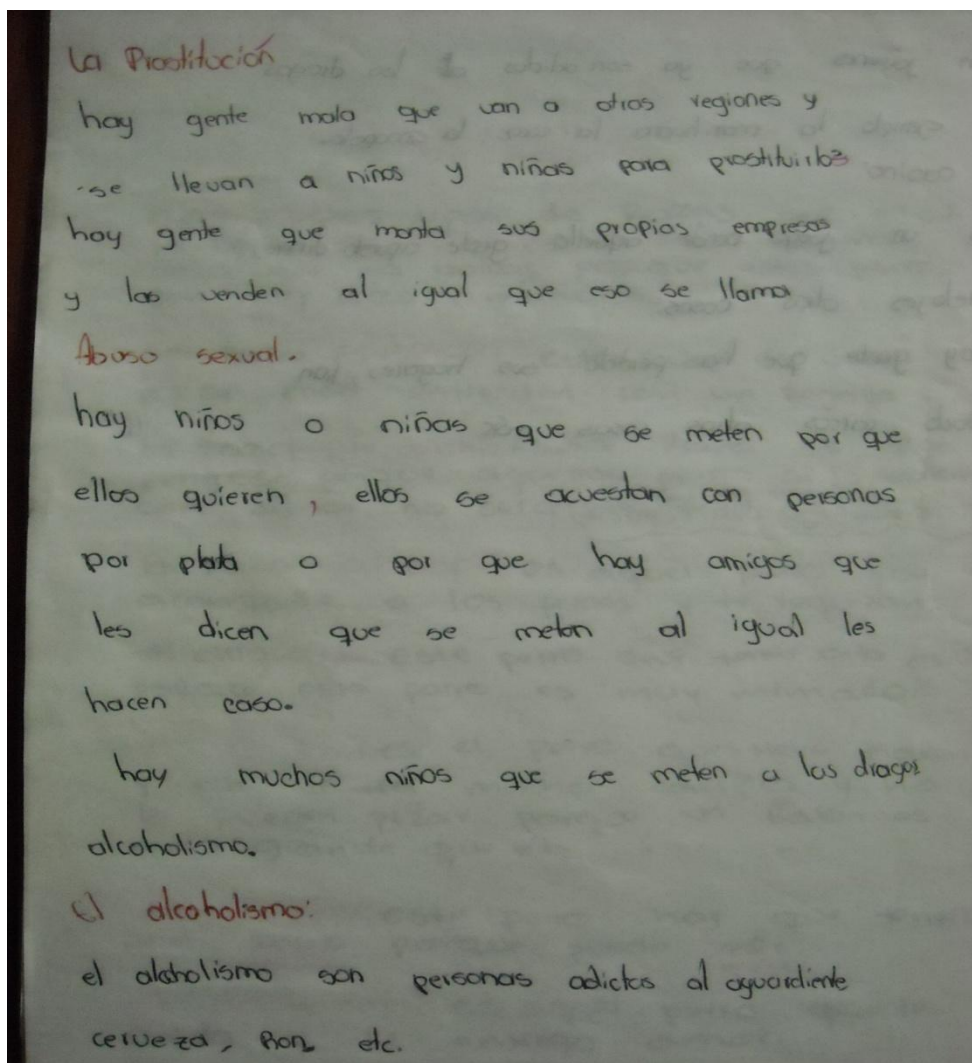 La Prostitución
hay gente mala que van a otras regiones y
se llevan a niños y niñas para prostituirlos
hay gente que monta sus propias empresas
y las venden al igual que eso se llama
Abuso sexual.
hay niños o niñas que se meten por que
ellos quieren, ellos se acuestan con personas
por plata o por que hay amigos que
les dicen que se metan al igual les
hacen caso.
hay muchos niños que se meten a las drogas
alcoholismo.
El alcoholismo:
el alcoholismo son personas adictas al aguardiente
cerveza, Ron etc.